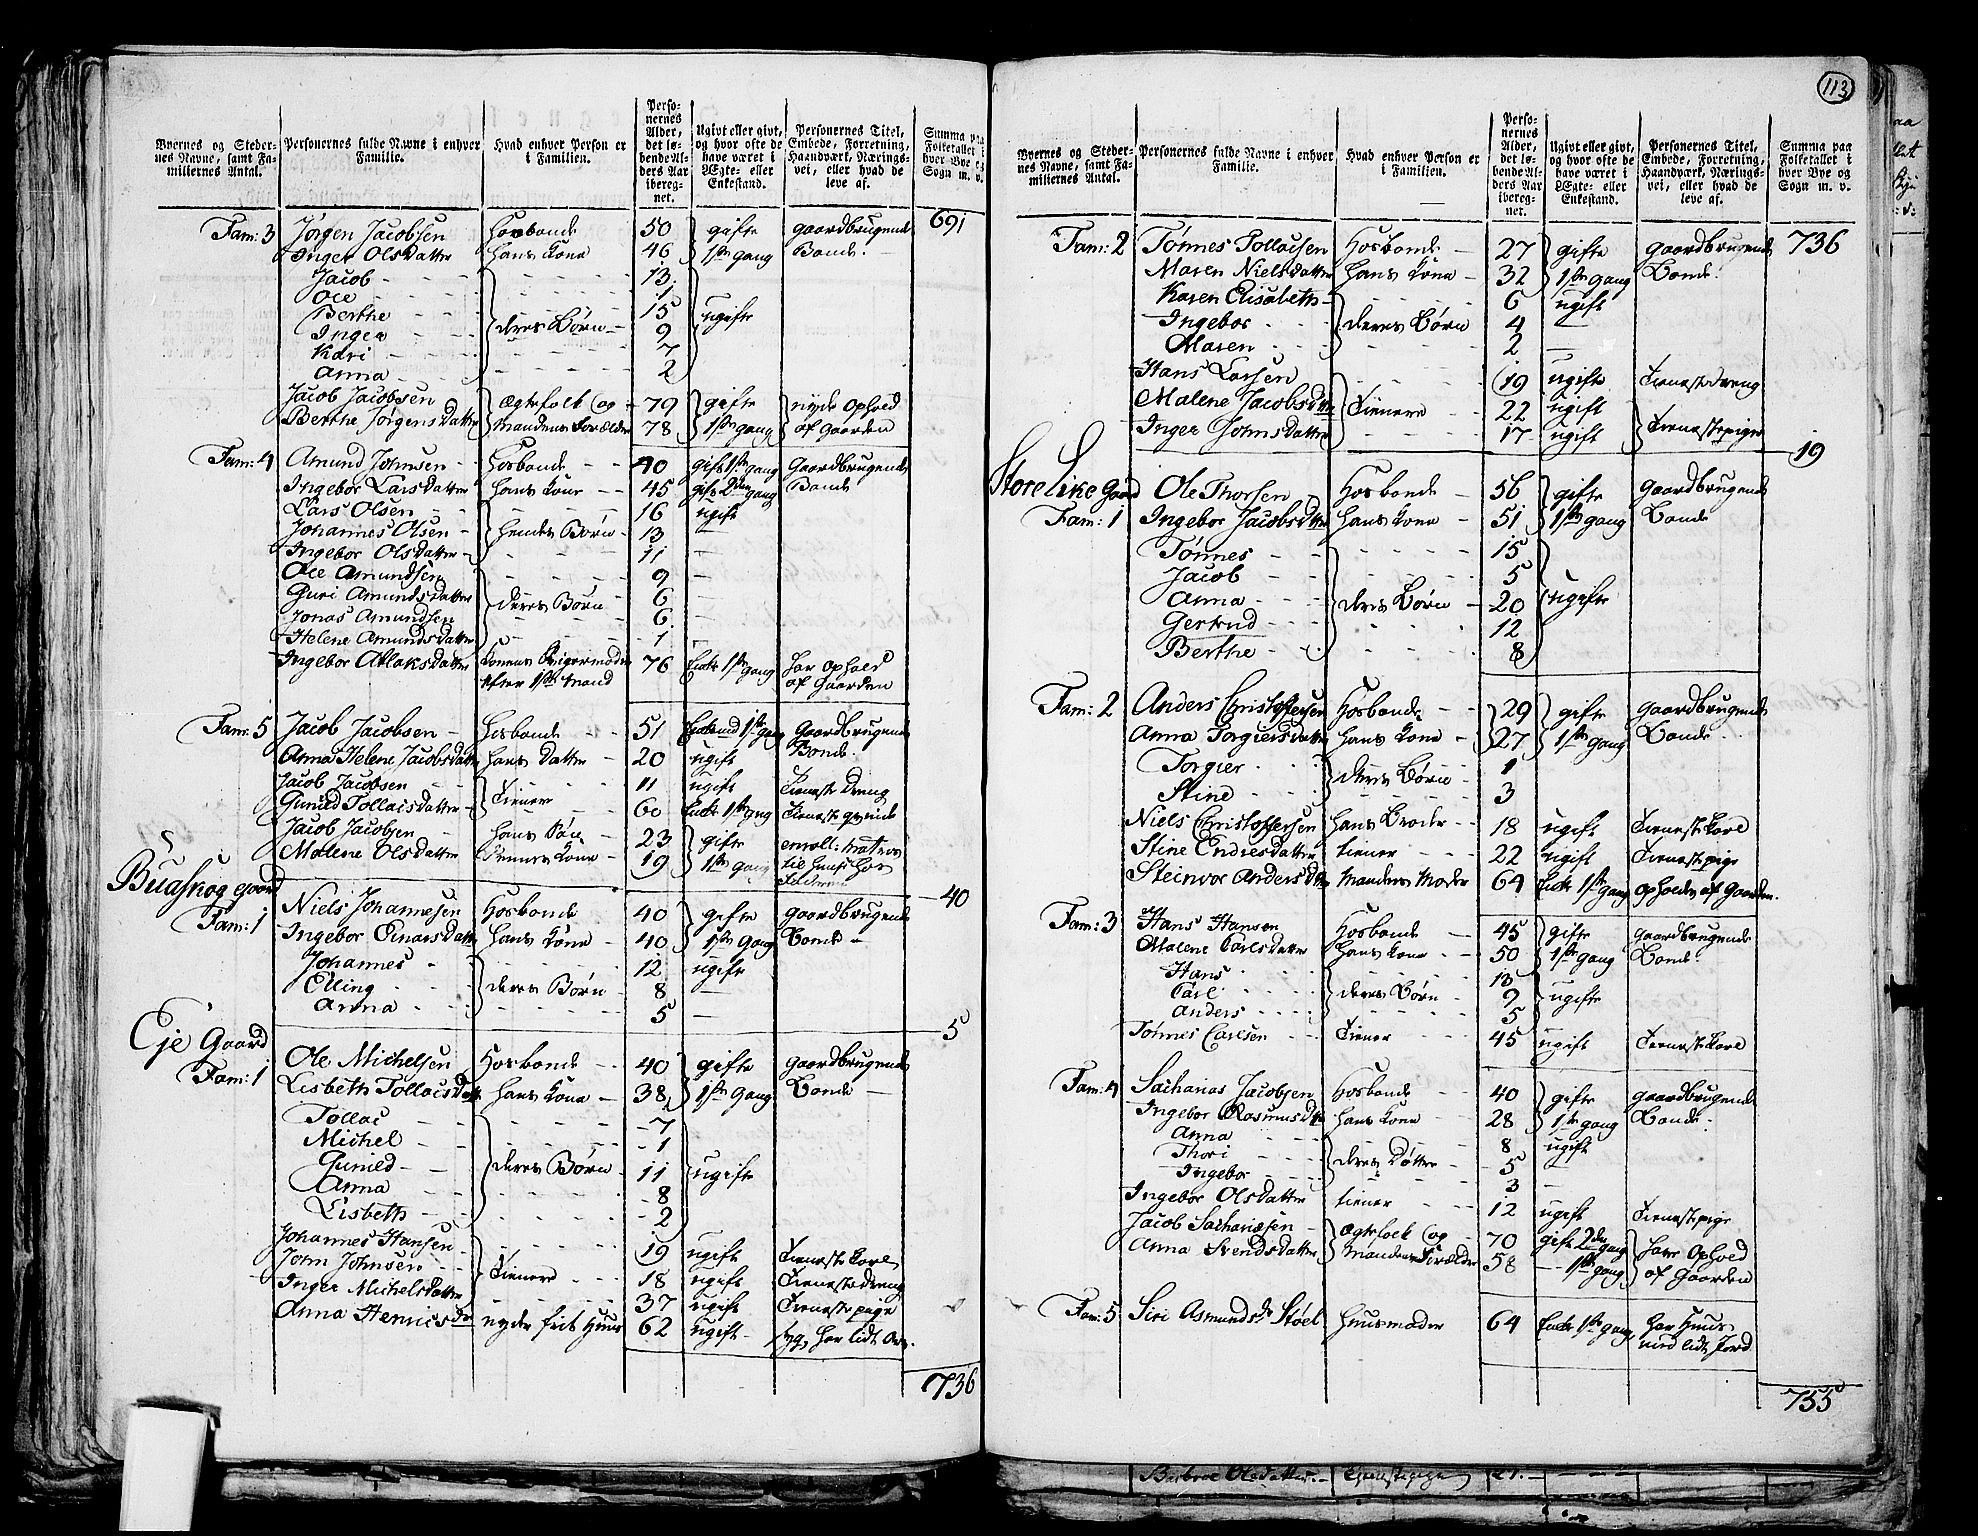 Byernes og Steder-nes Navne, samt Fa-miliernes Antal. | Personernes fulde Navne i enhver Familie. | Hvad enhver Person er i Familien. | Perso-nernes Alder, det lø-bende Al-ders Aar ibereg-net. | Ugivt eller givt, og hvor ofte de have været i Ægte- eller Enkestand. | Personernes Titel, Embede, Forretning, Haandværk, Nærings-vei, eller hvad de leve af. | Summa paa Folketallet i hver Bye og Sogn m. v.
Fam: 3 Jørgen Jacobsen Hosbonde 50 gifte gaardbrugende 691
Inger Olsdatter hans Kone 46 1ste gang Bonde
Jacob 13
Ole 1
Berthe 15 ugifte
Inger deres Børn 9
Kari 7
Anna 2
Jacob Jacobsen Ægtefolk og 79 gifte nyde Ophold
Berthe Jørgensdatter Mandens Forældre 78 1ste gang af gaarden
Fam: 4 Amund Johnsen Hosbonde 40 gift 1ste gang Gaardbrugende
Ingebor Larsdatter hans Kone 45 gift 2den gang Bonde
Lars Olsen 16 ugift
Johannes Olsen hendes Børn 13 —
Ingebor Olsdatter 11
Ole Amundsen 9 —
Guri Amundsdatter deres Børn 6 —
Jonas Amundsen 6
Helene Amundsdatter 1 —
Ingebor Atlaksdatter Konens 76 Enke 1ste gang har Ophold
efter 1ste Mand af Gaarden
Fam: 5 Jacob Jacobsen Hosbonde 51 Enkemand 1ste gang Gaardbrugende
Anna Helene Jacobsdatter hans Datter 20 ugift Bonde
Jacob Jacobsen 11 ugift Tieneste Dreng
Gunild Tollacsdatter Tienere 60 Enke 1ste gang Tieneste qvinde
Jacob Jacobsen hans Søn 23 gifte enroll: matros
Malene Olsdatter Sønnens Kone 19 1ste gang til huus hos
Faderen
Buaskog gaard 40
Fam: 1 Niels Johannesen Hosbonde 40 gifte gaardbrugende
Ingebor Einarsdatter hans Kone 40 1ste Gang Bonde
Johannes 12 ugift
Elling deres Børn 8 —
Anna 5 —
Eje Gaard 5
Fam: 1 Ole Michelsen Hosbonde 40 gifte gaardbrugende
Lisbeth Tollacsdatter hans Kone 38 1ste Gang Bonde
Tollac 7
Michel 1
Gunild deres Børn 11 ugifte
Anna 8
Lisbeth 2
Johannes Hansen 19 ugift Tieneste Karl
John Johnsen Tienere 18 ugift Tieneste dreng
Inger Michelsdatter 37 ugift Tieneste pige
Anna Henricsdr nyder frit Huus 62 ugift syg, har lidt
736
113
Byernes og Steder-nes Navne, samt Fa-miliernes Antal. | Personernes fulde Navne i enhver Familie. | Hvad enhver Person er i Familien. | Perso-nernes Alder, det lø-bende Al-ders Aar ibereg-net. | Ugivt eller givt, og hvor ofte de have været i Ægte- eller Enkestand. | Personernes Titel, Embede, Forretning, Haandværk, Nærings-vei, eller hvad de leve af. | Summa paa Folketallet i hver Bye og Sogn m. v.
Fam: 2 Tønnes Tollacsen Hosbonde 27 gifte gaardbrugende 736
Maren Nielsdatter hans Kone 32 1ste gang Bonde
Karen Elisabeth 6 ugift
Ingebor deres Børn 4 —
Maren 2 —
Hans Larsen 19 ugift Tieneste dreng
Malene Jacobsdtr Tienere 22 ugift
Inger Johnsdatter 17 ugift Tienestepiger
19
Store Like Gaard Ole Thorsen Hosbonde 56 gifte Gaardbrugende
Fam: 1 Ingebor Jacobsdtr hans Kone 51 1ste gang Bonde
Tønnes 15
Jacob 5
Anna deres Børn 20 ugifte
Gertrud 12
Berthe 8
Fam: 2 Anders Christophersen Hosbonde 29 gifte gaardbrugende
Anna Torgiersdatter hans Kone 27 1ste gang Bonde
Torgier deres Børn 1
Stine 3
Niels Christophersen hans Broder 18 ugift Tieneste Karl
Stine Endresdatter tiener 22 ugift Tienestepige
Steinvor Andersdtr Mandens Moder 64 Enke 1ste gang opholdes af Gaarden.
Fam: 3 Hans Hansen Hosbonde 45 gifte gaardbrugende
Malene Carlsdatter hans Kone 50 1ste gang Bonde
Hans 13
Carl deres Børn 9 ugifte
Anders 5
Tønnes Carlsen Tiener 45 ugift Tieneste Karl
Fam: 4 Sacharias Jacobsen Hosbonde 40 gifte gaardbrugende
Ingebor Rasmusdtr hans Kone 28 1ste gang Bonde
Anna 8 ugift
Thori deres Døttre 5 —
Ingebor 3 —
Ingebor Olsdatter tiener 12 ugift Tienestepige
Jacob Sachariesen Ægtefolk og 70 gift 2den gang har Ophold
Anna Svendsdatter Mandens Forældre 58 — 1ste gang af Gaarden
Fam: 5 Siri Asmundsdr Støel Huusmoder 64 Enke 1ste gang har Huus
med lidt Jord
755